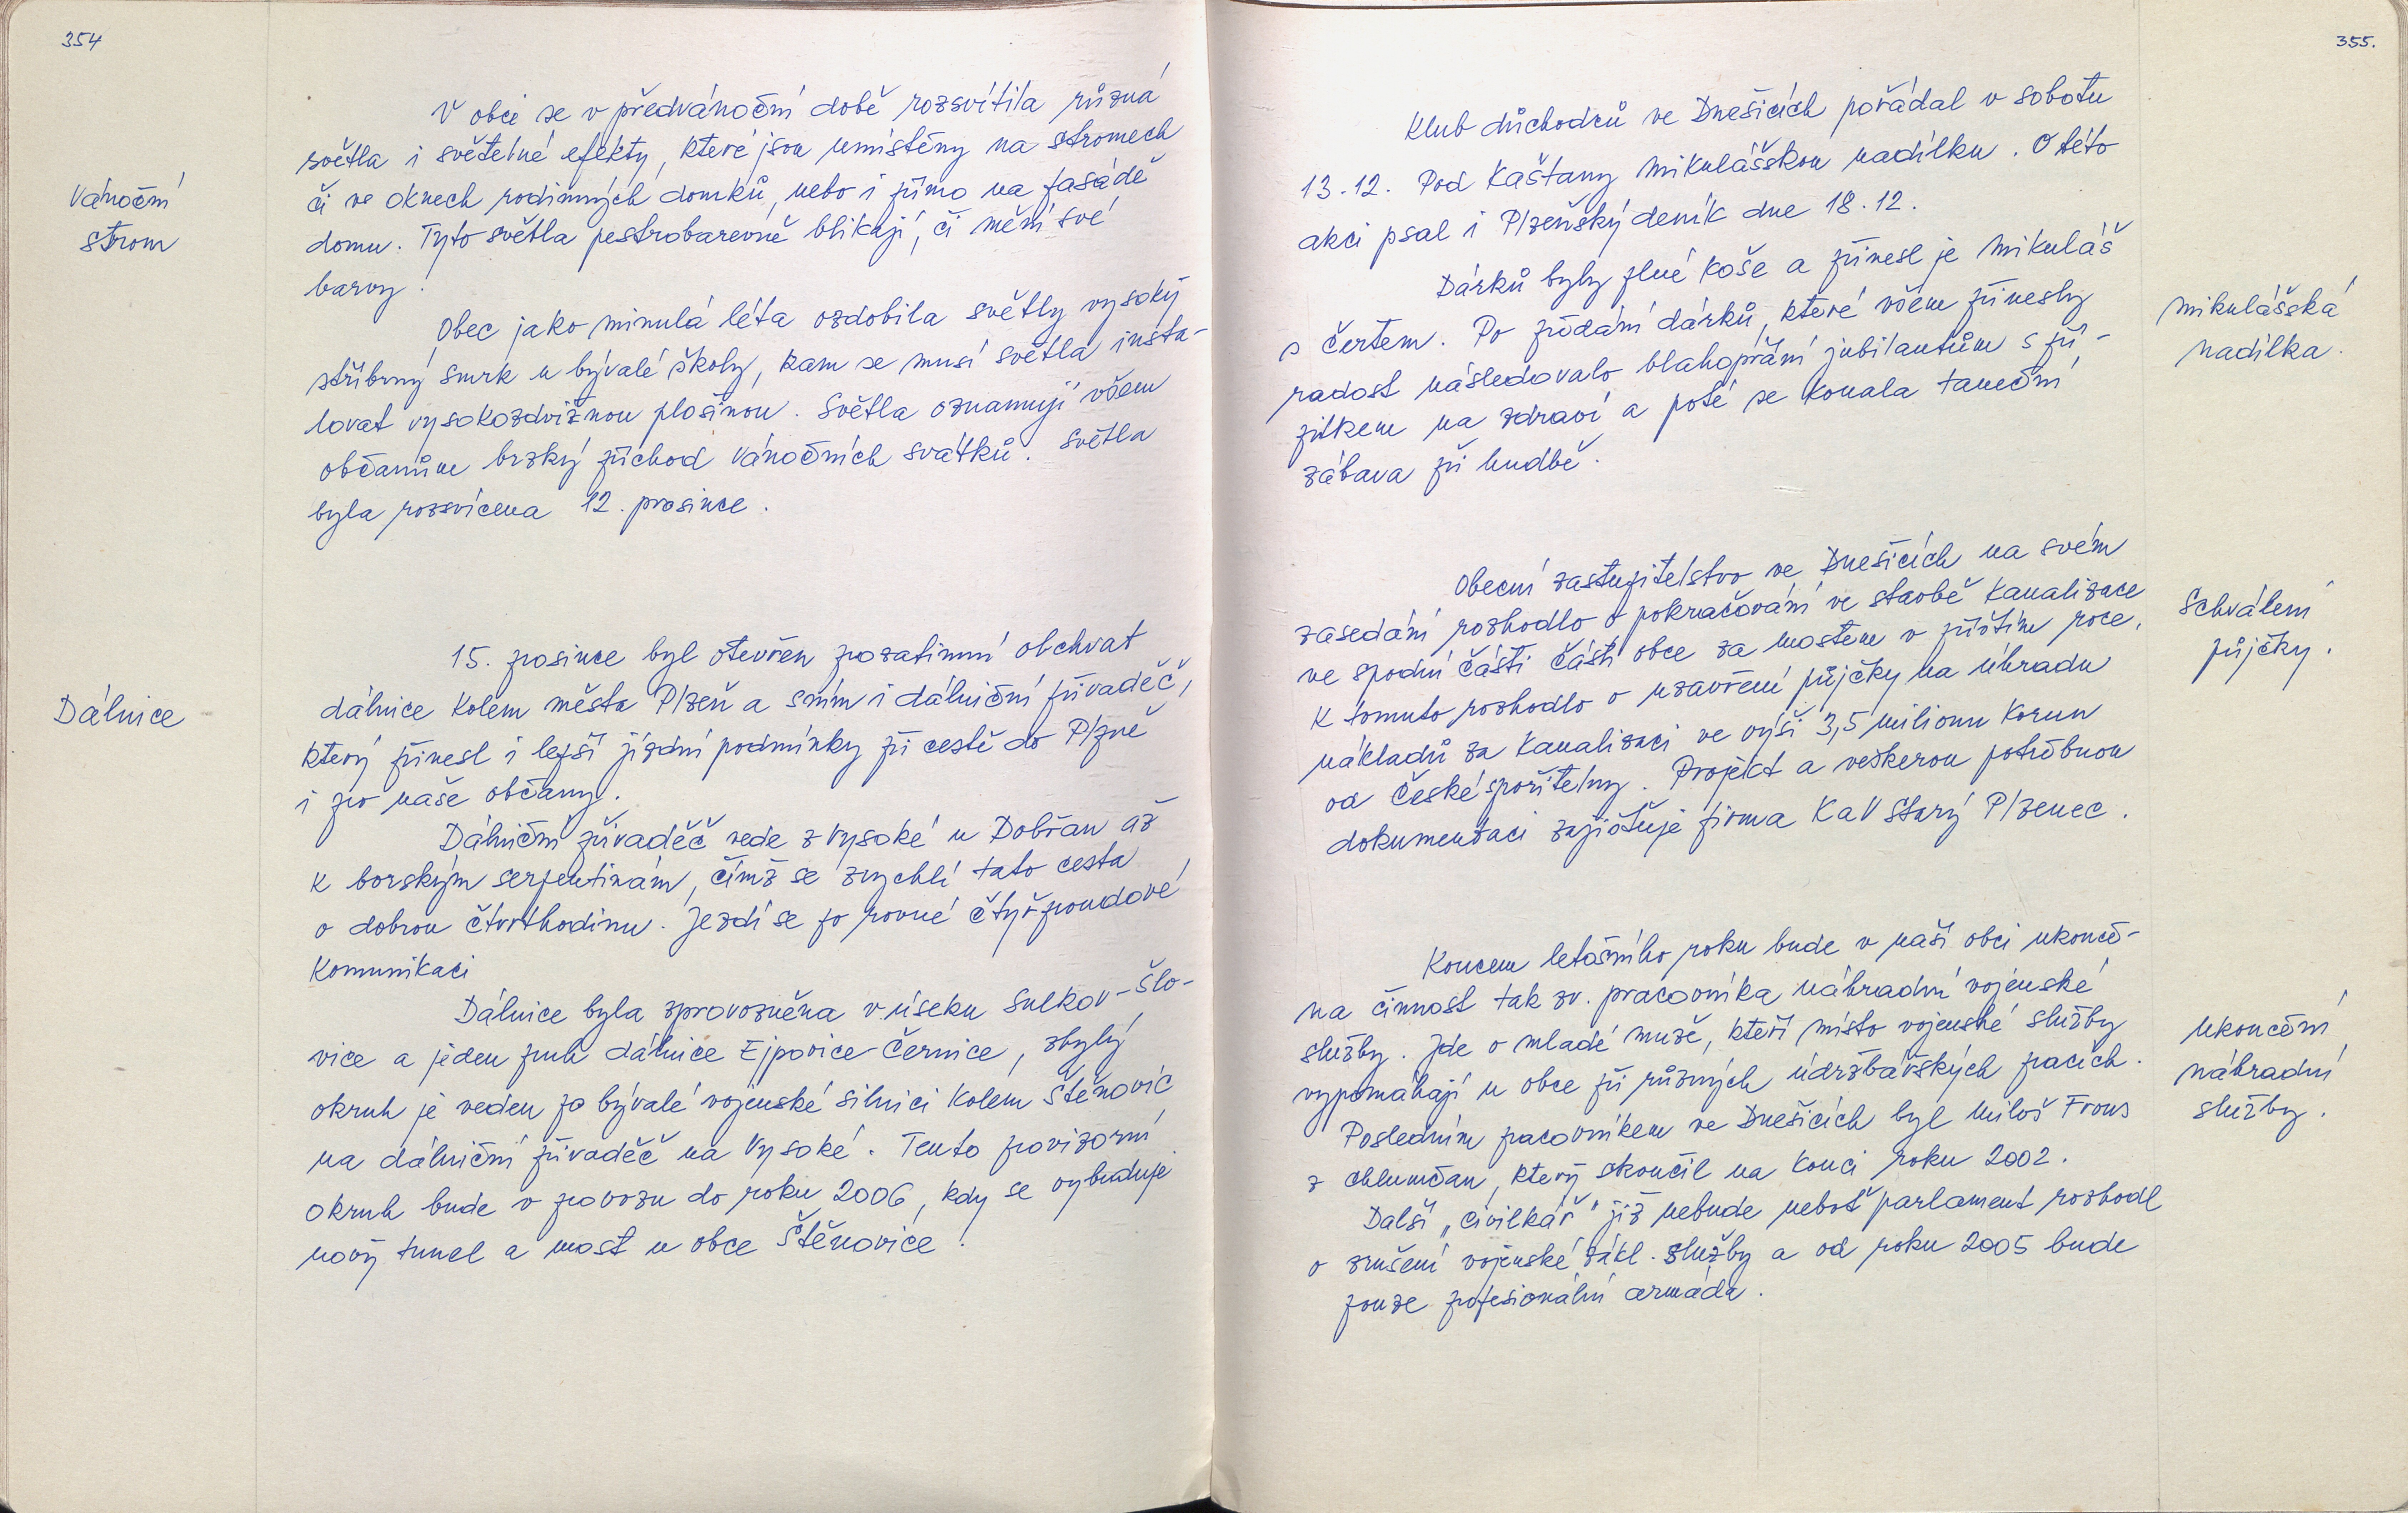 354
Vánoční
strom
V obci se v předvánoční době rozsvítila různá
světla i světelné efekty, které jsou umístěny na stromech
či ve oknech rodinných domků, nebo i přímo na fasádě
domu. Tyto světla pestrobarevně blikají, či mění své
barvy.
Obec jako minulá léta ozdobila světly vysoký
stříbrný smrk u bývalé školy, kam se musí světla insta-
lovat vysokozdvižnou plošinou. Světla oznamují všem
občanům brzký příchod vánočních svátků. Světla
byla rozsvícena 12. prosince.
Dálnice
15. prosince byl otevřen prozatimní obchvat
dálnice kolem města Plzeň a s ním i dálniční přivaděč,
který přinesl i lepší jízdní podmínky při cestě do Plzně
i pro naše občany.
Dálniční přivaděč vede z Vysoké u Dobřan až
k borským serpentinám, čímž se zrychlí tato cesta
o dobrou čtvrthodinu. Jezdí se po rovné čtyřproudové
komunikaci
Dálnice byla zprovozněna v úseku Sulkov-Šlo-
vice a jeden pruh dálnice Ejpovice-Černice, zbylý
okruh je veden po bývalé vojenské silnici kolem Štěnovic
na dálniční přivaděč na Vysoké. Tento provizorní
okruh bude v provozu do roku 2006, kdy se vybuduje
nový tunel a most u obce Štěnovice.
355.
Klub důchodců ve Dnešicích pořádal v sobotu
13.12. Pod Kaštany mikulášskou nadílku. O této
akci psal i Plzeňský deník dne 18.12.
Dárků byly plné koše a přinesl je Mikuláš
s čertem. Po předání dárků, které všem přinesly
radost následovalo blahopřání jubilantům s pří-
pitkem na zdraví a poté se konala taneční
zábava při hudbě.
mikulášská
nadílka.
Obecní zastupitelstvo ve Dnešicích na svém
zasedání rozhodlo o pokračování ve stavbě kanalizace
ve spodní části části obce za mostem v příštím roce.
K tomuto rozhodlo o uzavření půjčky na úhradu
nákladů za kanalizaci ve výši 3,5 milionu korun
od České spořitelny. Projekt a veškerou potřebnou
dokumentaci zajišťuje firma KaV Starý Plzenec.
Schválení
půjčky.
Koncem letošního roku bude v naší obci ukonče-
na činnost tak zv. pracovníka náhradní vojenské
služby. Jde o mladé muže, kteří místo vojenské služby
vypomáhají u obce při různých údržbářských pracích.
Posledním pracovníkem ve Dnešicích byl Miloš Frous
z Chlumčan, který skončil na konci roku 2002.
Další „civilkář" již nebude neboť parlament rozhodl
o zrušení vojenské zákl. služby a od roku 2005 bude
pouze profesionální armáda.
Ukončení
náhradní
služby.